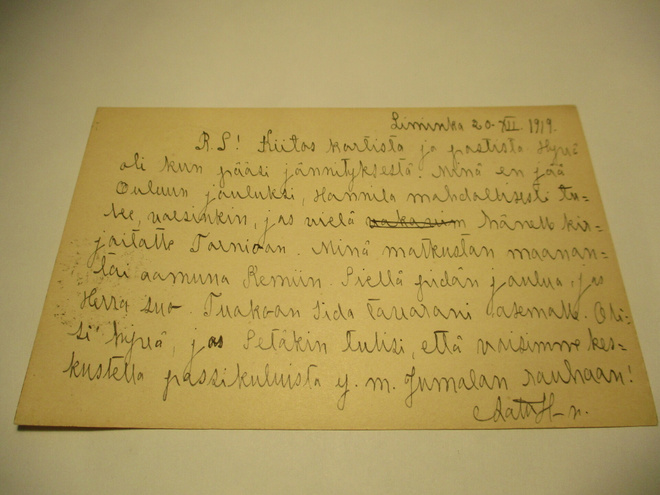 Liminka 20. XII. 1919.
R. S! Kiitos kortista ja passista Hyvä
oli kun pääsi jännityksestä. Minä en jää
Ouluun jouluksi, Hannila mahdollisesti tu-
lee, varsinkin, jos vielä hänelle kir-
joitatte Tornioon. Minä matkustan maanan-
tai aamuna Kemiin. Siellä pidän joulua, jos
Herra suo. Tuokoon Iida tavarani asemalle. Oli-
si hyvä, jos Setäkin tulisi, että voisimme kes-
kustella passikuluista y. m. Jumalan rauhaan!
H-n.